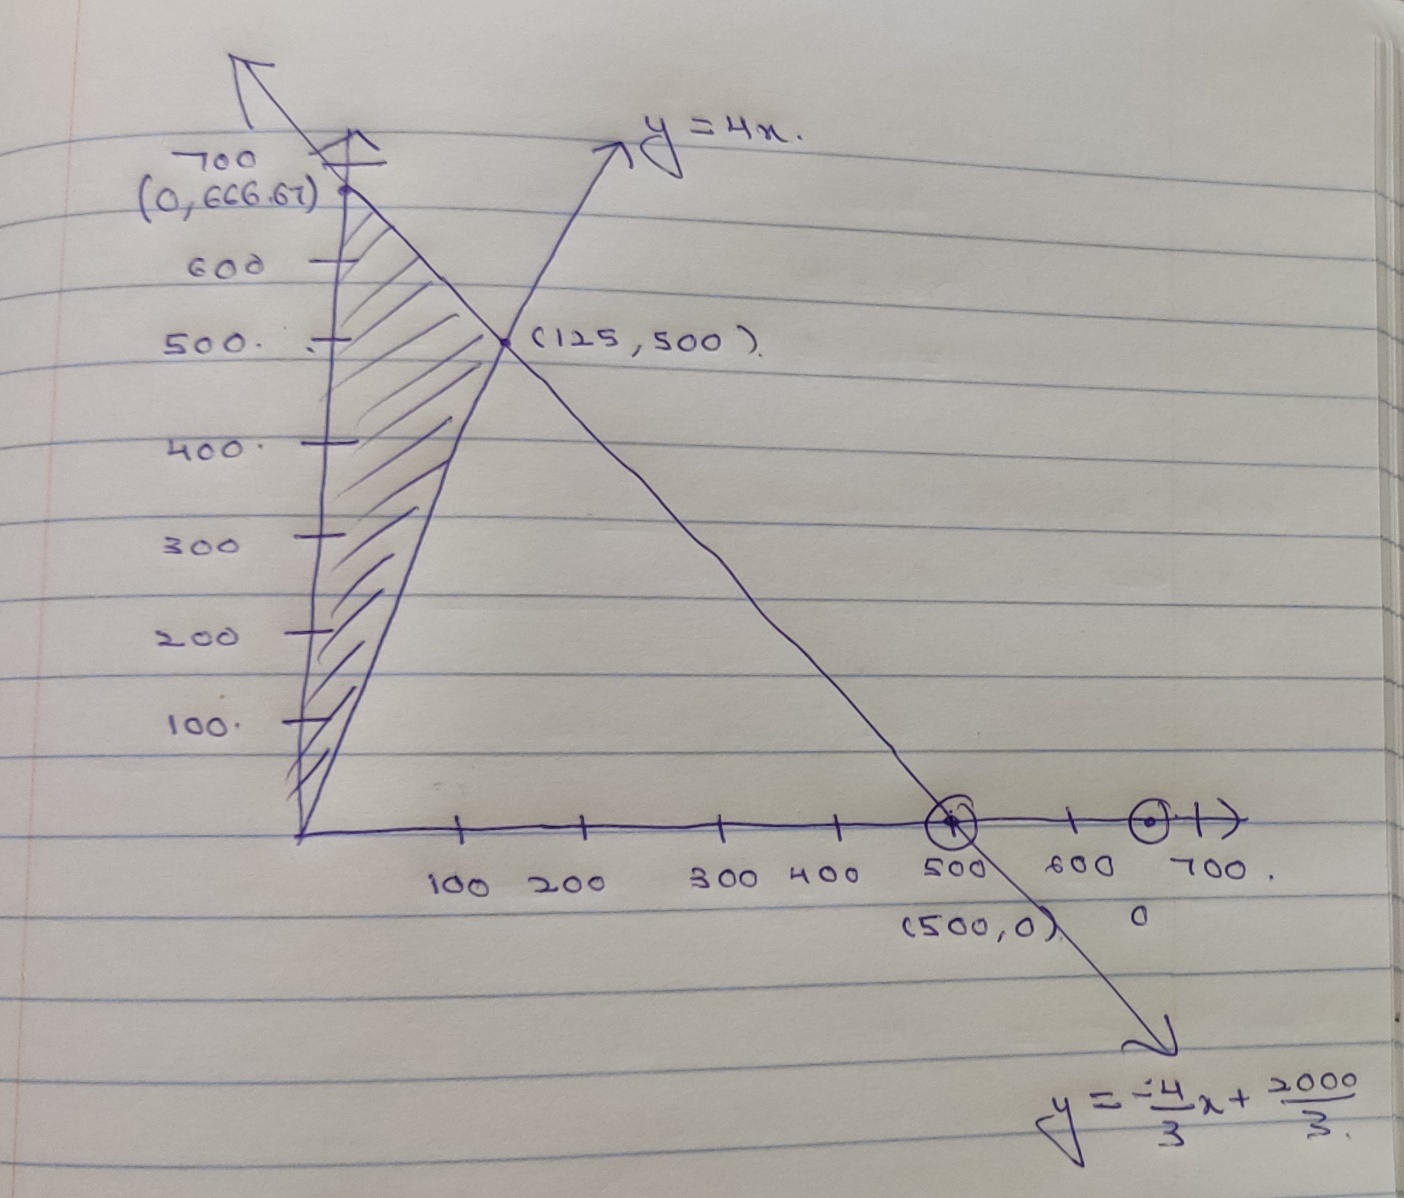 y = 4x.
700
(0, 666.67)
600
500.
(125, 500).
400.
300
200
100.
100 200 300 400 500 600 700.
(500, 0)
0
y = -4/3 x + 2000/3.